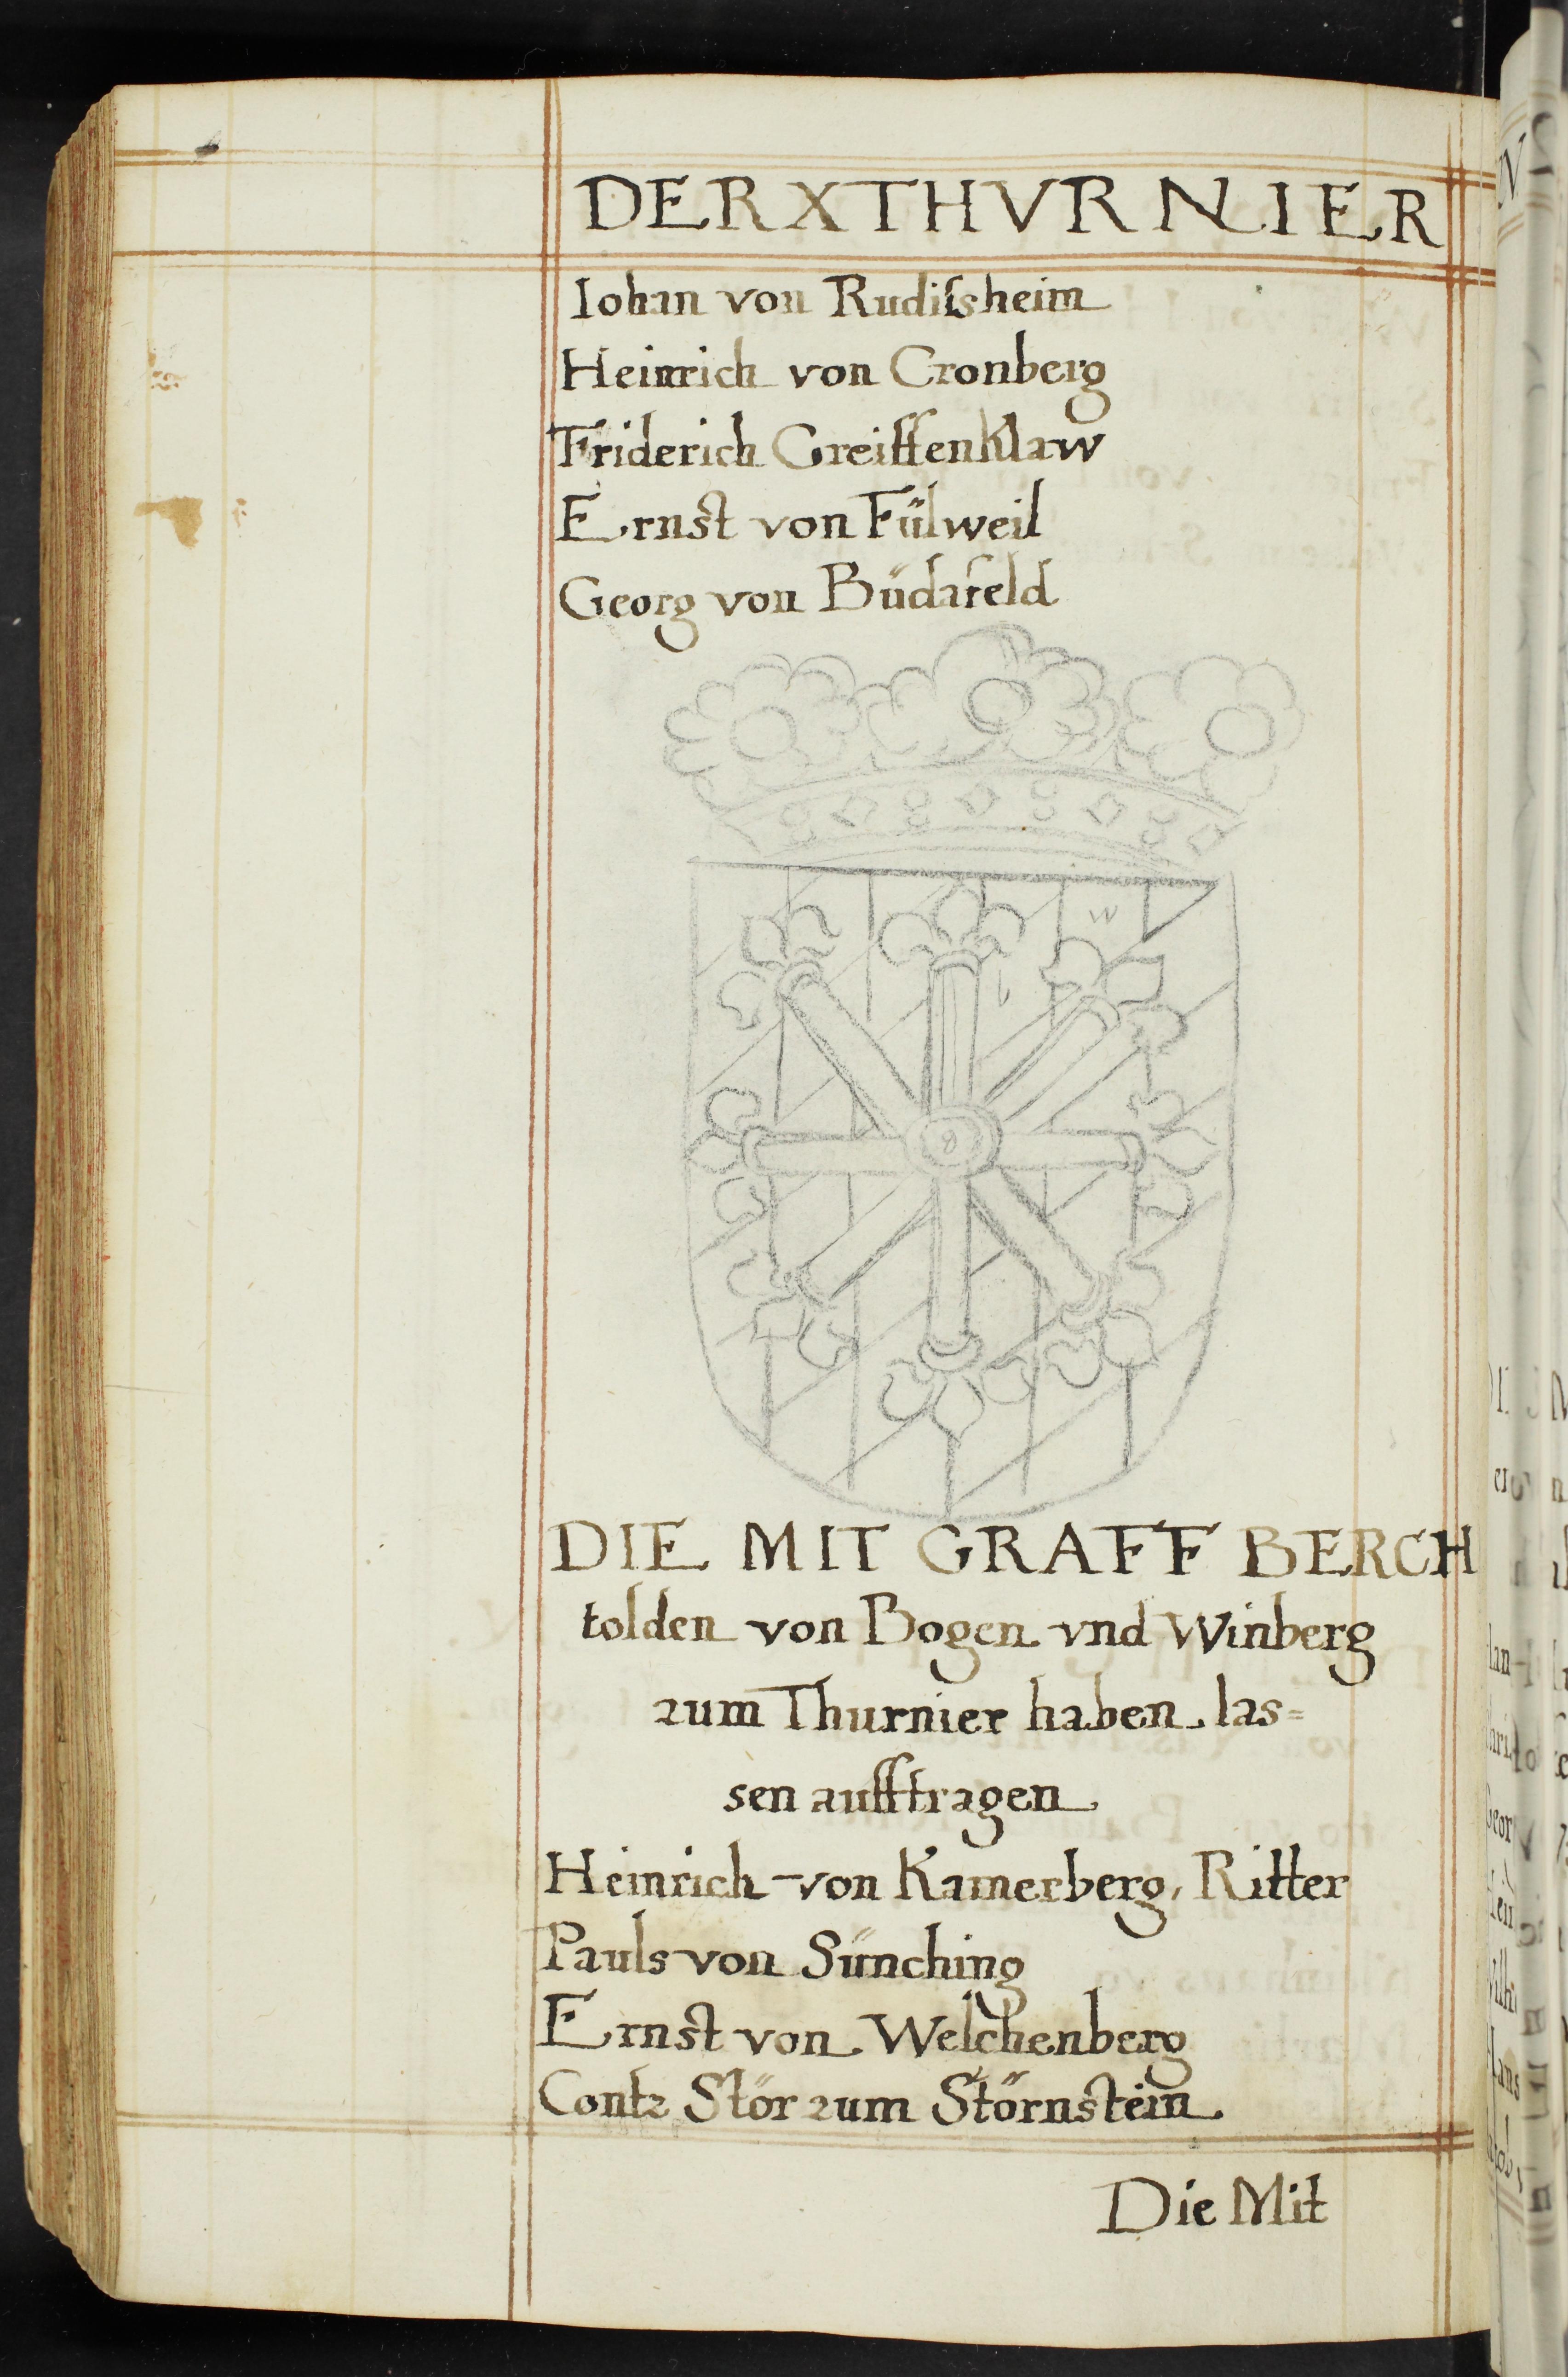 DER X THVRNIER
Iohan von Rudiſsheim
Heinrich von Cronberg
Friderich Greiffenklaw
Ernst von Fülweil
Georg von Büdafeld
w
DIE MIT GRAFF BERCH
tolden von Bogen vnd Winberg
zum Thurnier haben las=
sen aufftragen
Heinrich von Kamerberg, Ritter
Pauls von Sünching
Ernst von Welchenberg
Contz Stör zum Störnstein
Die Mit